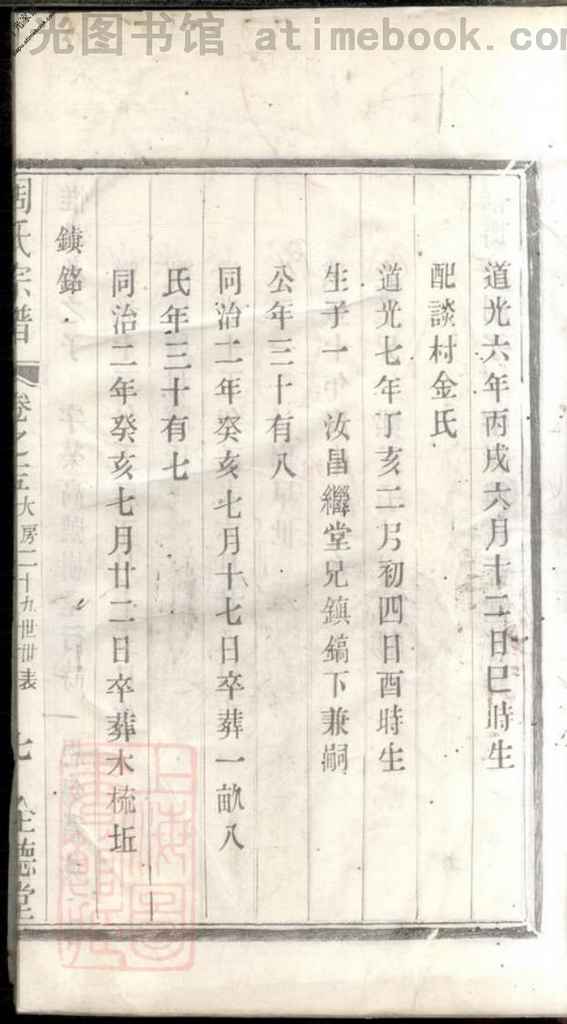 光图书馆 atimebook.com
道光六年丙戌六月十二日巳時生
配談村金氏
道光七年丁亥二月初四日酉時生
生子一 汝昌繼堂兄鎮鎬下兼嗣
公年三十有八
同治二年癸亥七月十七日卒葬一畝八
氏年三十有七
同治二年癸亥七月廿二日卒葬木梳坵
鎮銘
周氏宗譜 卷之五 大房二十九世世表 七 全德堂